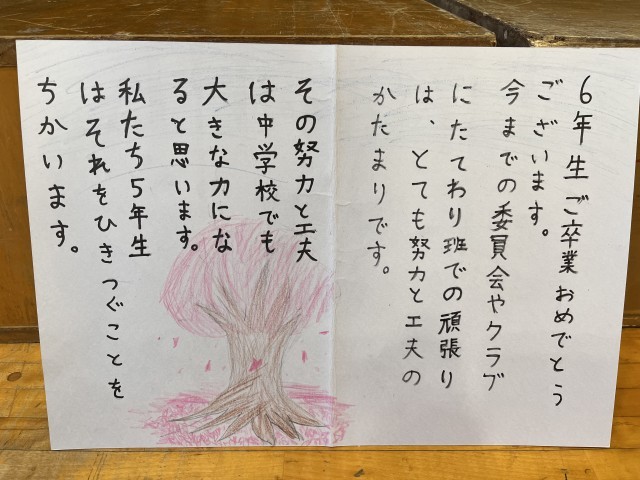 6年生ご卒業おめでとう
ございます。
今までの委員会やクラブ
にたてわり班での頑張り
は、とても努力と工夫の
かたまりです。
その努力と工夫
は中学校でも
大きな力にな
ると思います。
私たち5年生
はそれをひきつぐことを
ちかいます。